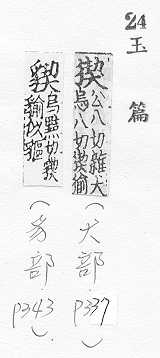 24
玉篇
猰 公八切雜犬
烏八切猰㺄
(犬部)
p337
䝟 烏黠切䝟
貐似貙
(豸部)
p343